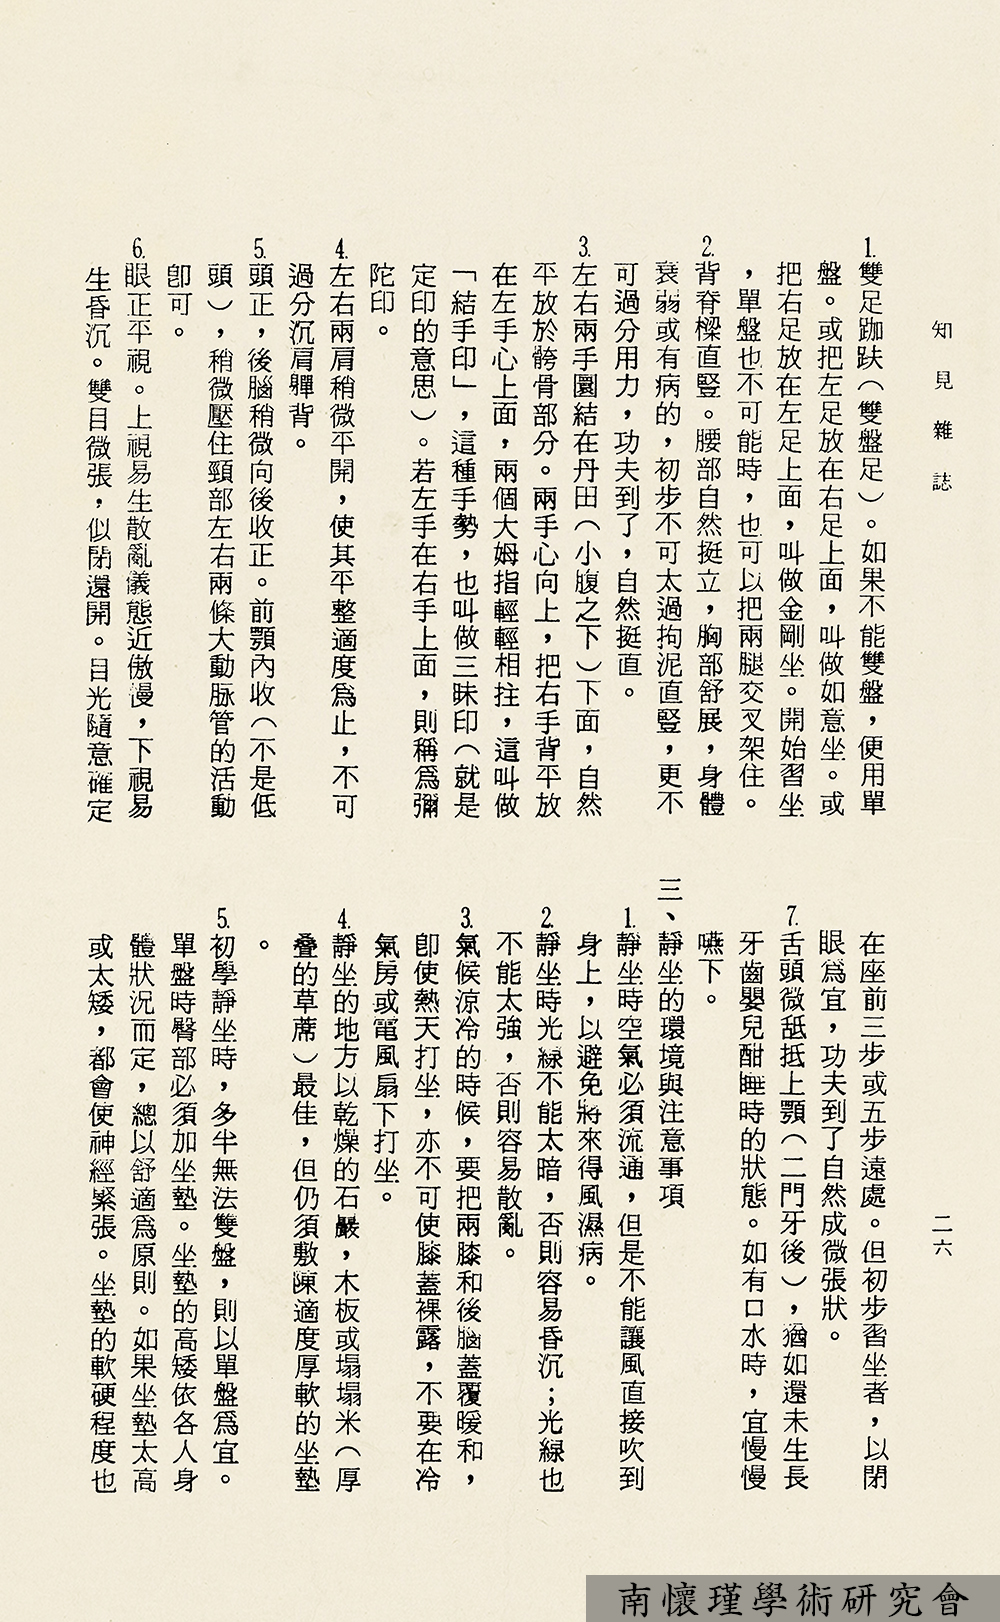 知見雜誌
1.雙足跏趺(雙盤足)。如果不能雙盤,便用單
盤。或把左足放在右足上面,叫做如意坐。或
把右足放在左足上面,叫做金剛坐。開始習坐
,單盤也不可能時,也可以把兩腿交叉架住。
2.背脊樑直豎。腰部自然挺立,胸部舒展,身體
衰弱或有病的,初步不可太過拘泥直豎,更不
可過分用力,功夫到了,自然挺直。
3.左右兩手圜結在丹田(小腹之下)下面,自然
平放於骻骨部分。兩手心向上,把右手背平放
在左手心上面,兩個大姆指輕輕相拄,這叫做
「結手印」,這種手勢,也叫做三昧印(就是
定印的意思)。若左手在右手上面,則稱爲彌
陀印。
4.左右兩肩稍微平開,使其平整適度爲止,不可
過分沉肩軃背。
5.頭正,後腦稍微向後收正。前顎內收(不是低
頭),稍微壓住頸部左右兩條大動脉管的活動
卽可。
6.眼正平視。上視易生散亂儀態近傲慢,下視易
生昏沉。雙目微張,似閉還開。目光隨意確定
在座前三步或五步遠處。但初步習坐者,以閉
眼爲宜,功夫到了自然成微張狀。
7.舌頭微舐抵上顎(二門牙後),猶如還未生長
牙齒嬰兒酣睡時的狀態。如有口水時,宜慢慢
嚥下。
三、靜坐的環境與注意事項
1.靜坐時空氣必須流通,但是不能讓風直接吹到
身上,以避免將來得風濕病。
2.靜坐時光線不能太暗,否則容易昏沉;光線也
不能太強,否則容易散亂。
3.氣候涼冷的時候,要把兩膝和後腦蓋覆暖和,
卽使熱天打坐,亦不可使膝蓋裸露,不要在冷
氣房或電風扇下打坐。
4.靜坐的地方以乾燥的石嚴,木板或塌塌米(厚
叠的草蓆)最佳,但仍須敷陳適度厚軟的坐墊
。
5.初學靜坐時,多半無法雙盤,則以單盤爲宜。
單盤時臀部必須加坐墊。坐墊的高矮依各人身
體狀況而定,總以舒適爲原則。如果坐墊太高
或太矮,都會使神經緊張。坐墊的軟硬程度也
二六
南懷瑾學術研究會